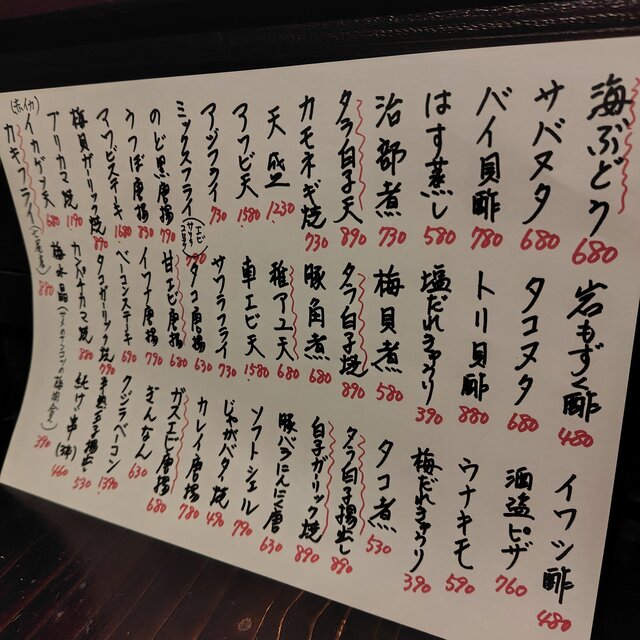 海ぶどう 680
岩もずく酢 480
イワシ酢 480
サバヌタ 680
タコヌタ 680
酒盗ピザ 760
バイ貝酢 780
トリ貝酢 880
ウナキモ 590
はす蒸し 580
塩だれきゅうり 390
梅だれきゅうり 390
治部煮 730
梅貝煮 580
タコ煮 530
タラ白子天 890
タラ白子焼 890
タラ白子揚出し 890
カモネギ焼 730
豚角煮 680
白子ガーリック焼 890
天盛 1230
稚アユ天 680
豚バラにんにく唐 630
アワビ天 1580
車エビ天 1580
ソフトシェル 790
アジフライ 730
サワラフライ 730
じゃがバタ焼 490
ミックスフライ
タコ唐揚 630
カレイ唐揚 780
のど黒唐揚 790
甘エビ唐揚 680
ガスエビ唐揚 680
うつぼ唐揚 830
イワナ唐揚 790
ぎんなん 630
アワビステーキ 1680
ベーコンステーキ 690
クジラベーコン 1390
梅貝ガーリック焼 890
タコガーリック焼 790
揚出し 530
ブリカマ焼 1190
カンパチカマ焼 880
(赤イカ)
イカゲソ天 680
梅水晶(サメのナンコツの梅肉合え) 390
カキフライ(七尾産) 880